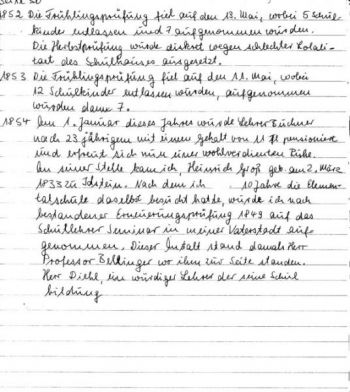 Seite 30
1852 Die Frühlingsprüfung fiel auf den 13. Mai, wobei 5 Schul-
kinder entlassen und 7 aufgenommen wurden.
Die Herbstprüfung wurde diskret wegen schlechter Lokali-
tät des Schulhauses ausgesetzt.
1853 Die Frühlingsprüfung fiel auf den 11. Mai, wobei
12 Schulkinder entlassen wurden, aufgenommen
wurden dann 7.
1854 Am 1. Januar dieses Jahres wurde Lehrer Büchner
nach 23 jährigem mit einem Gehalt von 11 fl pensioniert
und erfreut sich nun einer wohlverdienten Ruhe.
An seiner Stelle kam ich, Heinrich Groß geb. am 2. März
1833 zu Idstein. Nach dem ich 10 Jahre die Elemen-
tarschule daselbst besucht hatte, wurde ich nach
bestandener Erneuerungsprüfung 1849 auf das
Schullehrer Seminar in meiner Vaterstadt auf-
genommen. Dieser Anstalt stand damals Herr
Professor Bellinger vor ihm zur Seite standen.
Herr Diehl, ein würdiger Lehrer der seine Schul
bildung